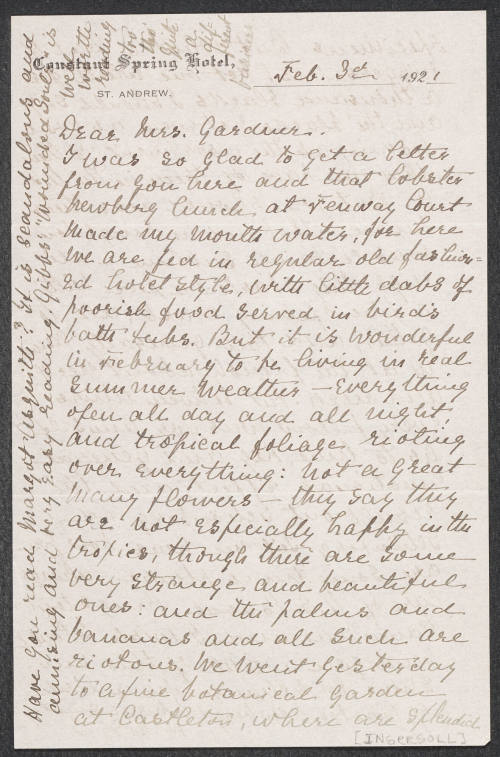 Constant Spring Hotel,
ST. ANDREW.
Feb. 3rd 1921
Dear Mrs. Gardner.
I was so glad to get a letter
from you here and that lobster
newberg lunch at Fenway Court
made my mouth water, for here
we are fed in regular old fashion=
ed hotel style, with little dabs of
poorish food served in bird's
bath tubs. But it is wonderful
in February to be living in real
summer weather — everything
open all day and all night,
and tropical foliage rioting
over everything: not a great
many flowers — they say they
are not especially happy in the
tropics, though there are some
very strange and beautiful
ones: and the palms and
bananas and all such are
riotous. We went yesterday
to a fine botanical garden
at Castleton, where are splendid
[INGERSOLL]
Have you read Margot Asquith? It is scandalous and
amusing and very easy reading. Gibbs' "Wounded Souls" is
well
worth
reading
too
this
just
a
different